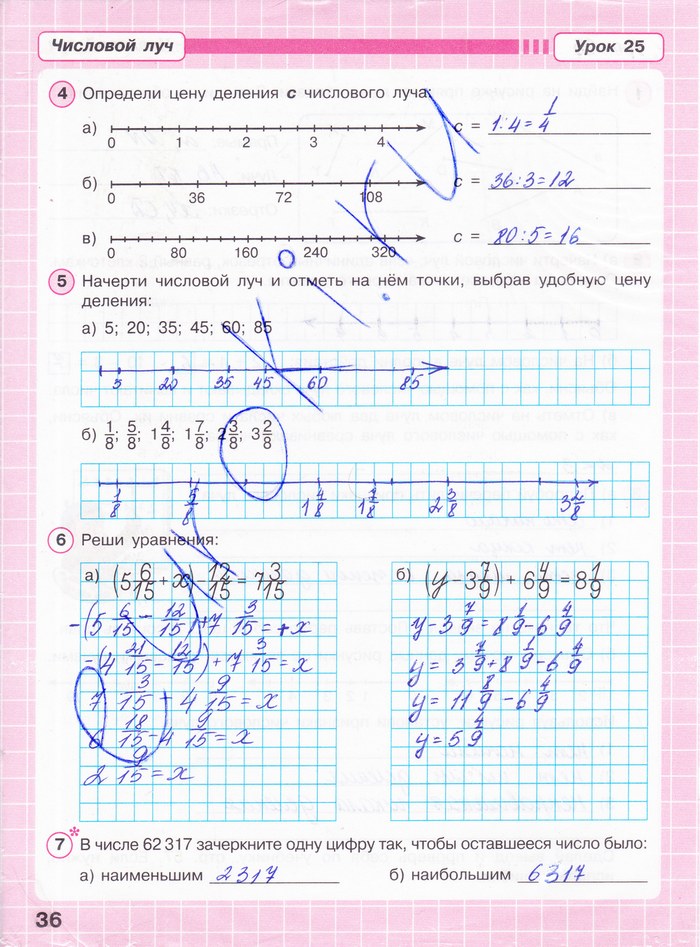 Числовой луч Урок 25
4 Определи цену деления c числового луча:
а) 0 1 2 3 4 c = 1:4=1/4
б) 0 36 72 108 c = 36:3=12
в) 0 80 160 240 320 c = 80:5=16
5 Начерти числовой луч и отметь на нём точки, выбрав удобную цену
деления:
а) 5; 20; 35; 45; 60; 85
5 20 35 45 60 85
б) 1/8; 5/8; 1 4/8; 1 7/8; 2 3/8; 3 2/8
1/8 5/8 1 4/8 1 7/8 2 3/8 3 2/8
6 Реши уравнения:
а) (5 6/15 + x) − 12/15 = 7 3/15
−(5 6/15 − 12/15) + 7 3/15 = + x
−(4 21/15 − 12/15) + 7 3/15 = x
7 3/15 − 4 9/15 = x
6 18/15 − 4 9/15 = x
2 9/15 = x
б) (y − 3 7/9) + 6 4/9 = 8 1/9
y − 3 7/9 = 8 1/9 − 6 4/9
y = 3 7/9 + 8 1/9 − 6 4/9
y = 11 8/9 − 6 4/9
y = 5 4/9
7* В числе 62 317 зачеркните одну цифру так, чтобы оставшееся число было:
а) наименьшим 2317 б) наибольшим 6317
36